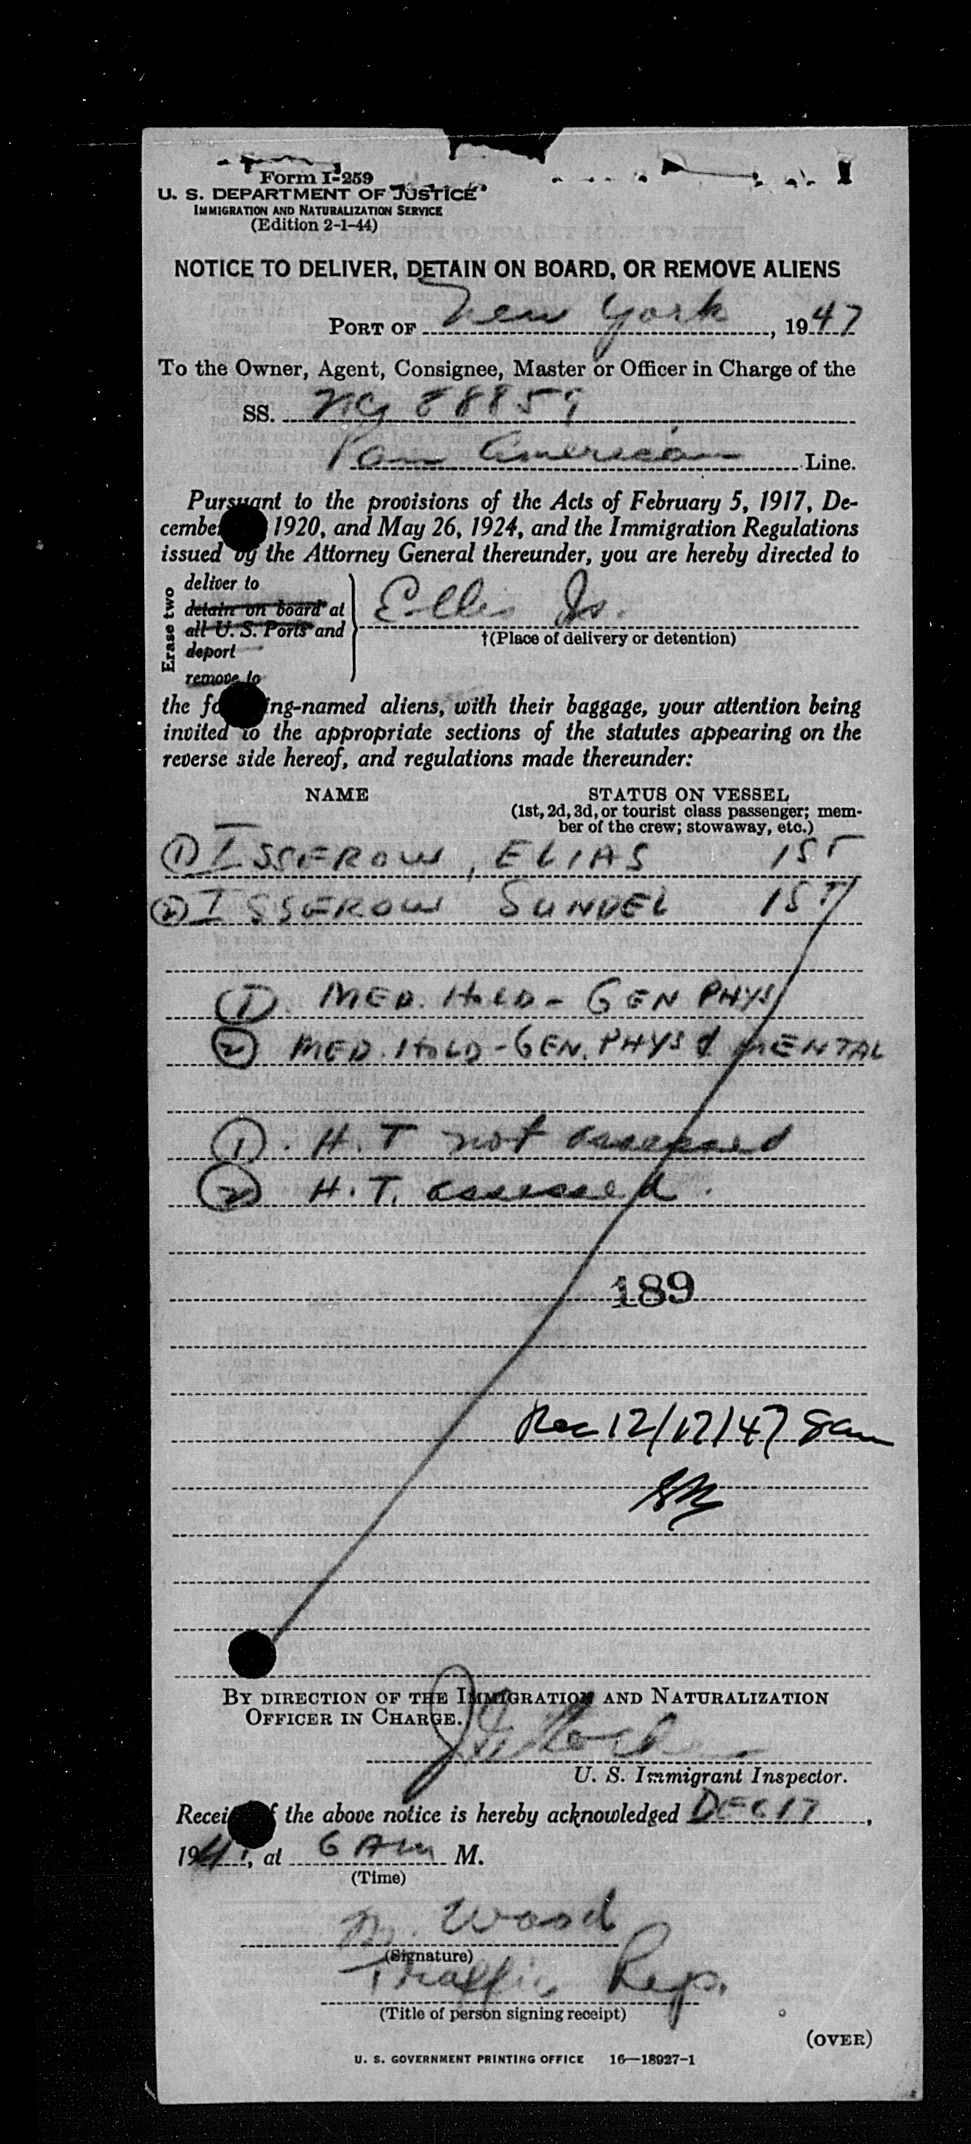 Form I-259
U. S. DEPARTMENT OF JUSTICE
IMMIGRATION AND NATURALIZATION SERVICE
(Edition 2-1-44)
NOTICE TO DELIVER, DETAIN ON BOARD, OR REMOVE ALIENS
PORT OF New York, 1947
To the Owner, Agent, Consignee, Master or Officer in Charge of the
SS. NC 88859
Pan American Line.
Pursuant to the provisions of the Acts of February 5, 1917, De-
cembe 1920, and May 26, 1924, and the Immigration Regulations
issued by the Attorney General thereunder, you are hereby directed to
Erase two
deliver to
detain on board at
all U. S. Ports and
deport
remove to
Ellis Is.
†(Place of delivery or detention)
the fo ing-named aliens, with their baggage, your attention being
invited to the appropriate sections of the statutes appearing on the
reverse side hereof, and regulations made thereunder:
NAME STATUS ON VESSEL
(1st, 2d, 3d, or tourist class passenger; mem-
ber of the crew; stowaway, etc.)
① ISSEROW, ELIAS 1ST
② ISSEROW SUNDEL 1ST
① MED. HOLD - GEN PHYS
② MED. HOLD - GEN. PHYS & MENTAL
① . H. T not assessed
② H. T. assessed.
189
Rec 12/17/47 8am
By direction of the Immigration and Naturalization
Officer in Charge.
U. S. Immigrant Inspector.
Recei f the above notice is hereby acknowledged DEC 17,
194, at 6 Am M.
(Time)
M. Wood
(Signature)
Traffic Rep.
(Title of person signing receipt)
(OVER)
U. S. GOVERNMENT PRINTING OFFICE 16—18927-1